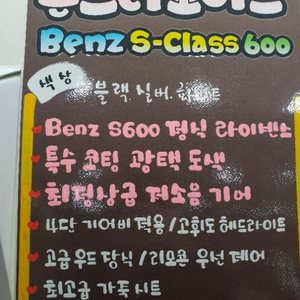 Benz S-Class 600
색상
블랙.실버.화이트
Benz S600 정식 라이센스
특수 코팅 광택 도색
최정상급 저소음 기어
4단 기어비 적용/고휘도 헤드라이트
고급 우드 장식/리모콘 우선 제어
최고급 가죽 시트